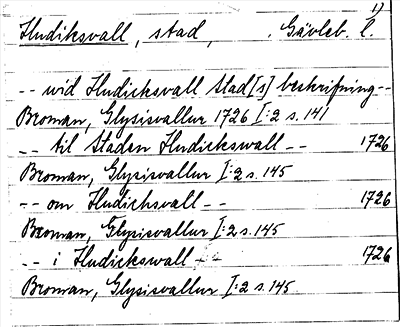 1)
Hudiksvall, stad, Gävleb. l.
-- wid Hudicksvall Stad[s] beskrifning --
Broman, Glysisvallur 1726 I:2 s. 141
-- til Staden Hudickswall -- 1726
Broman, Glysisvallur I:2 s. 145
-- om Hudichsvall -- 1726
Broman, Glysisvallur I:2 s. 145
-- i Hudickswall -- 1726
Broman, Glysisvallur I:2 s. 145